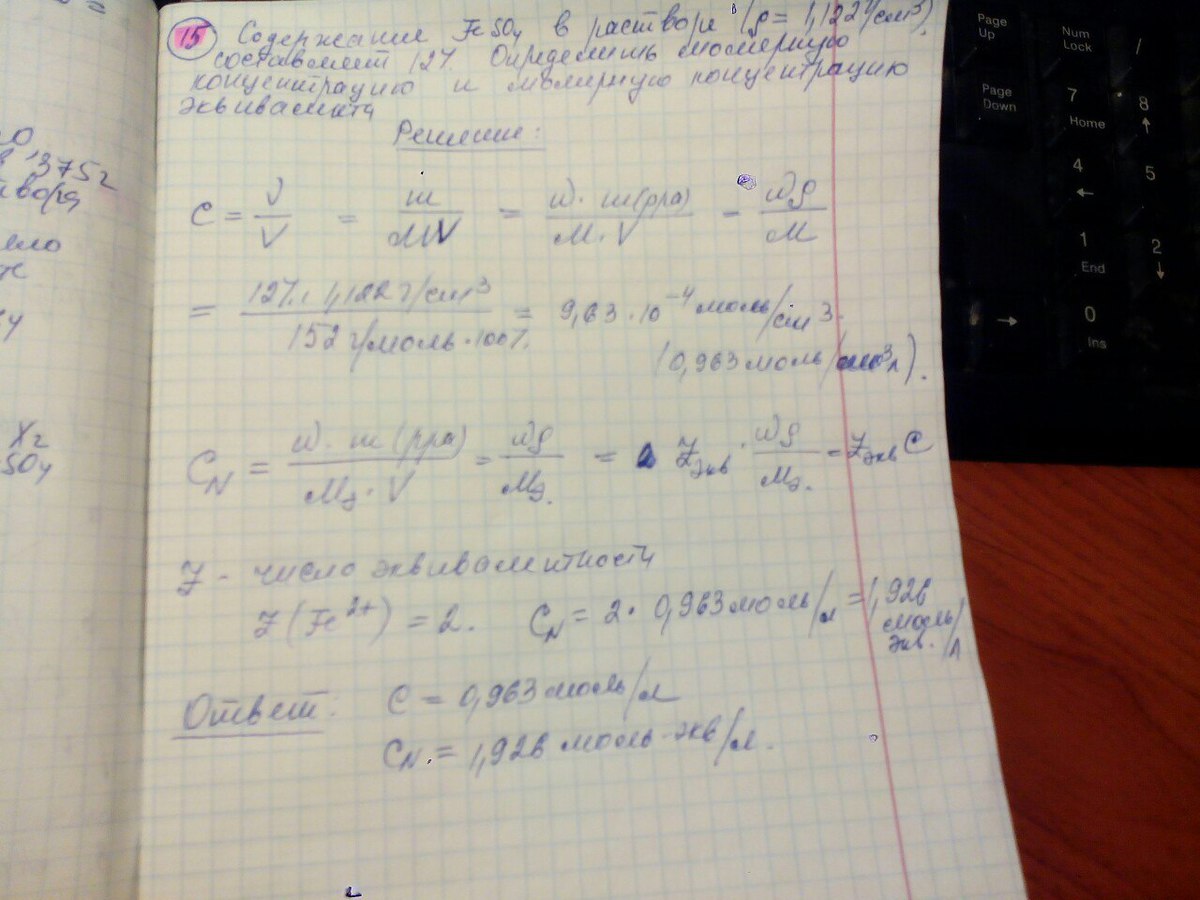 15 Содержание FeSO4 в растворе (ρ = 1,122 г/см³)
составляет 12%. Определить молярную
концентрацию и молярную концентрацию
эквивалента
Решение:
C = ν/V = m/MV = ω·m(рра)/M·V = ωρ/M
= 12%·1,122 г/см³/152 г/моль·100% = 9,63·10⁻⁴ моль/см³.
(0,963 моль/л).
CN = ω·m(рра)/Mэ·V = ωρ/Mэ. = Zэкв·ωρ/Mэ. = Zэкв C
Z - число эквивалентности
Z(Fe²⁺) = 2. CN = 2·0,963 моль/л = 1,926
моль/
экв./л
Ответ: C = 0,963 моль/л
CN. = 1,926 моль-экв/л.
1375г
твора
SO4
Page
Up
Num
Lock
/
Page
Down
7
Home
8
↑
4
←
5
1
End
2
↓
→
0
Ins